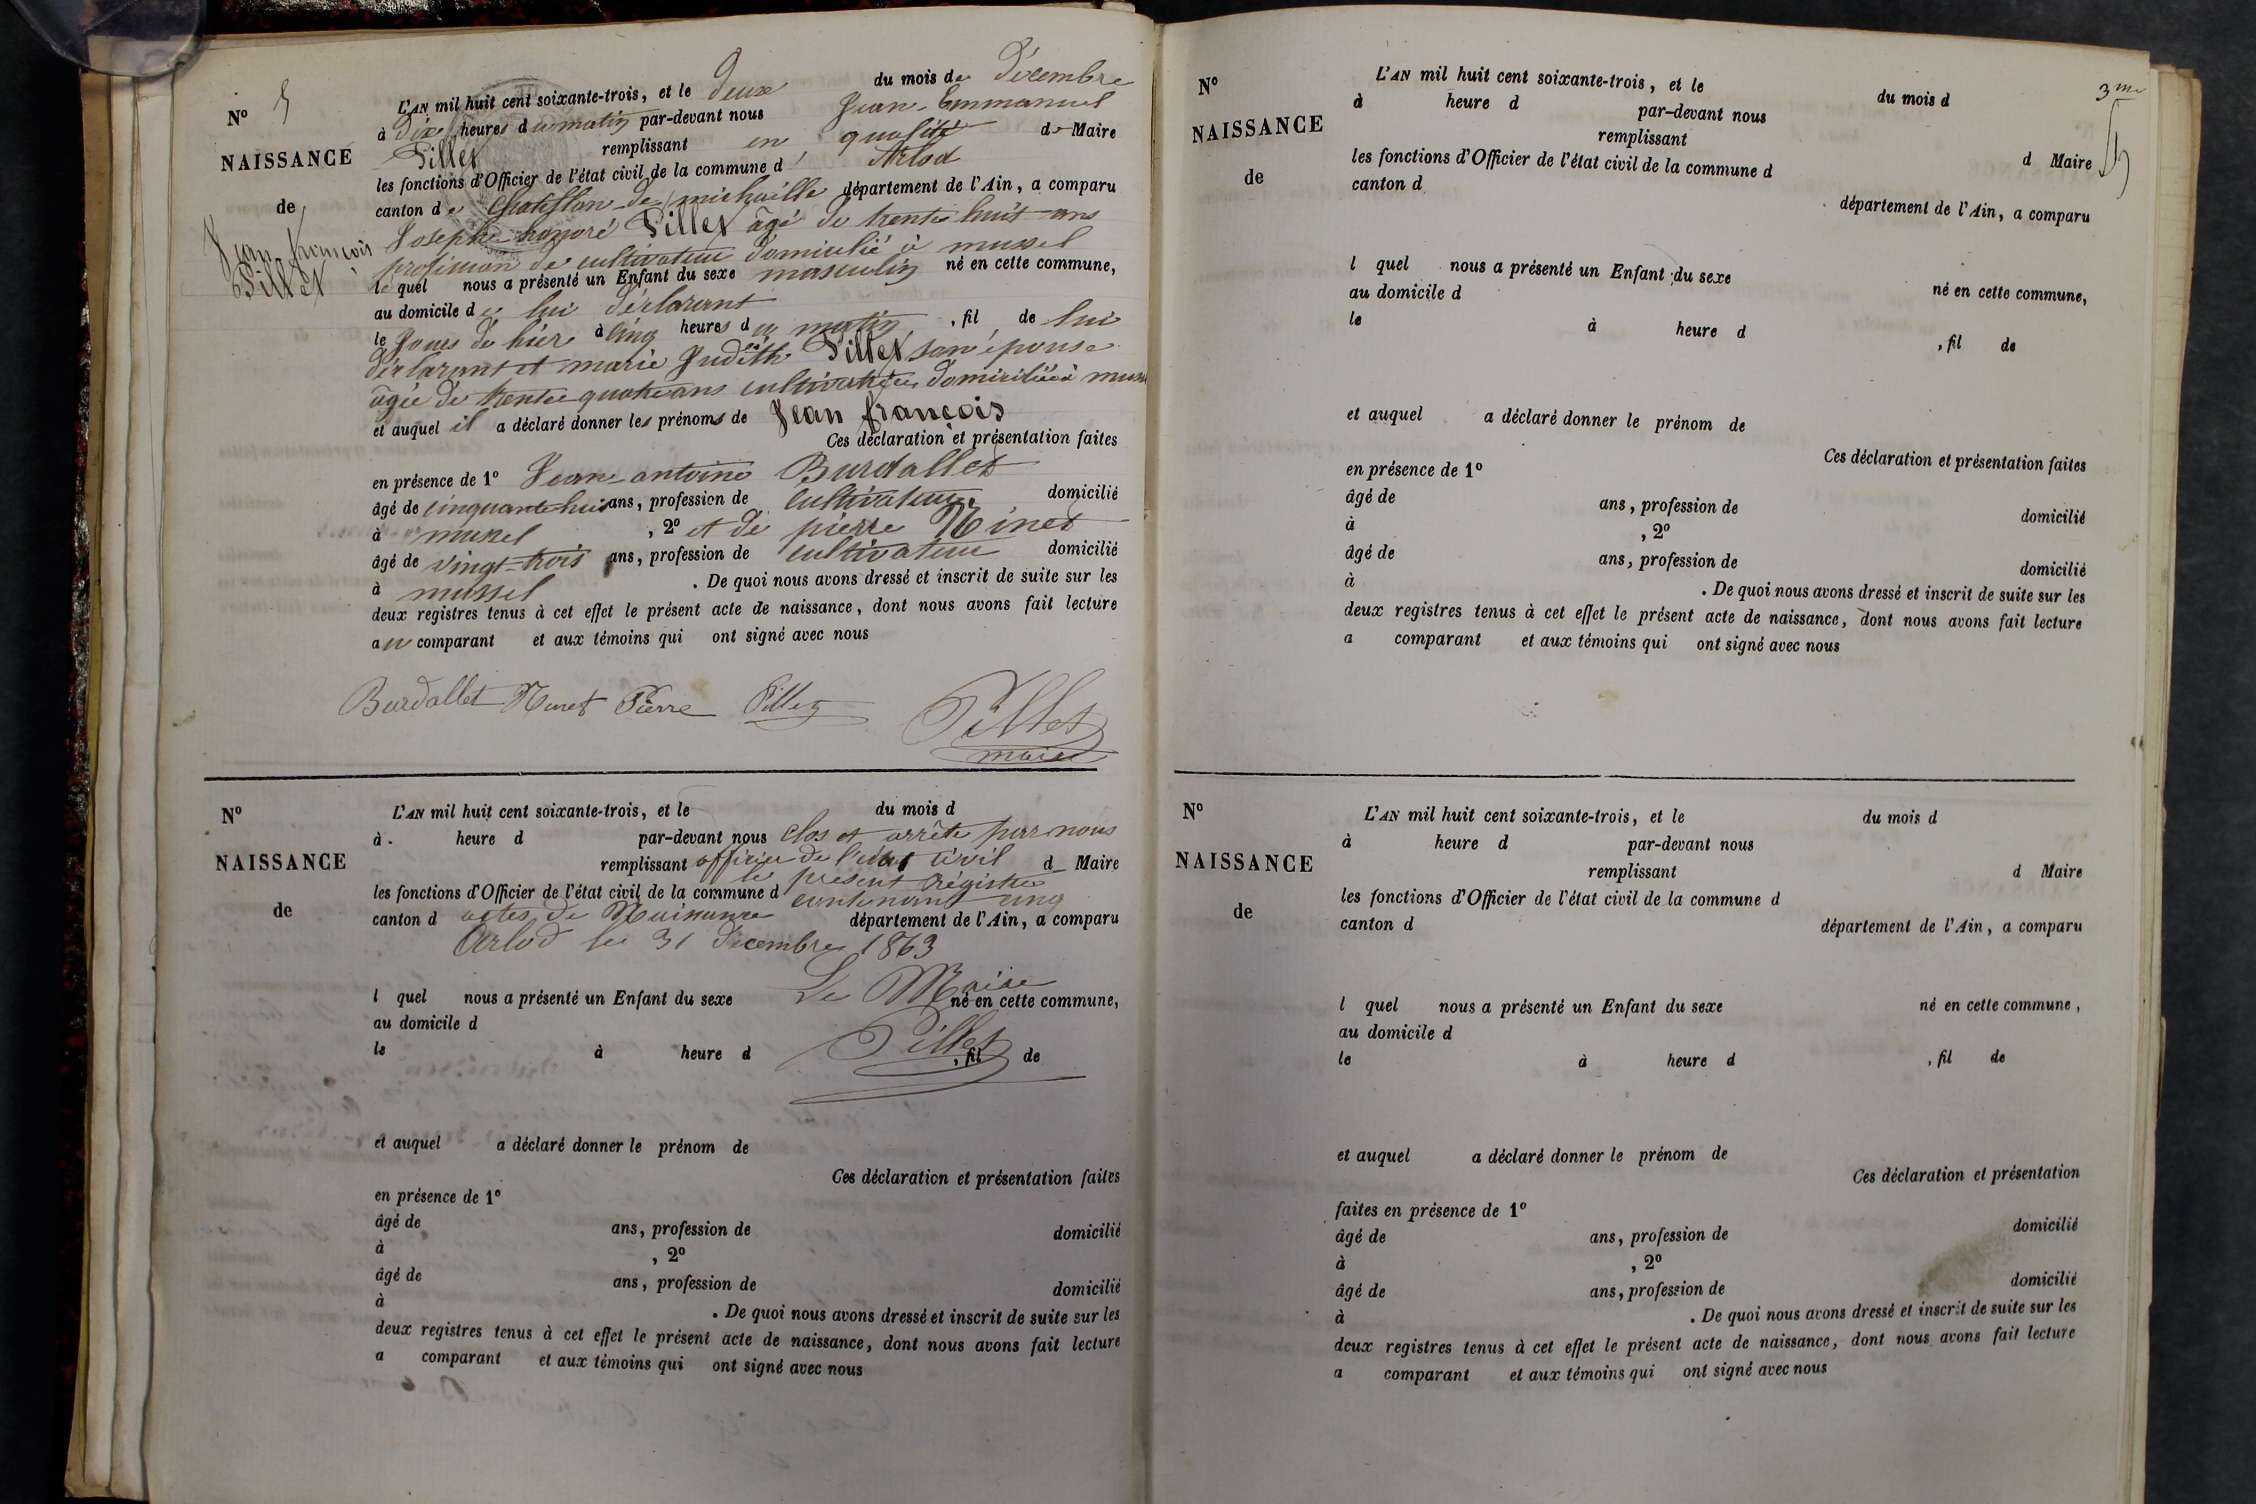 N° 5
NAISSANCE
de
Jean françois
Pillet
L'AN mil huit cent soixante-trois, et le deux du mois de Décembre
à dix heures du matin par-devant nous Jean-Emmanuel
Pillet remplissant en qualité de Maire
les fonctions d'Officier de l'état civil de la commune d'Arlod
canton de Chatillon de michaille département de l'Ain, a comparu
Joseph honoré Pillet âgé de trente huit ans
profession de cultivateur domicilié à mussel
lequel nous a présenté un Enfant du sexe masculin né en cette commune,
au domicile de lui déclarant
le Jours de hier à cinq heures du matin, fil de lui
déclarant et marie Judith Pillet son épouse
agée de trente quatre ans cultivatrice domiciliée à
et auquel il a déclaré donner les prénoms de Jean françois
Ces déclaration et présentation faites
en présence de 1° Jean antoine Burdallet
âgé de cinquante-huit ans, profession de cultivateur domicilié
à mussel, 2° et de pierre Ninet
âgé de vingt-trois ans, profession de cultivateur domicilié
à mussel. De quoi nous avons dressé et inscrit de suite sur les
deux registres tenus à cet effet le présent acte de naissance, dont nous avons fait lecture
au comparant et aux témoins qui ont signé avec nous
Burdallet Ninet Pierre Pillet Pillet
maire
N°
NAISSANCE
de
L'AN mil huit cent soixante-trois, et le du mois d
à heure d par-devant nous clos et arrêté par nous
remplissant officier de l'état civil d Maire
le présent régistre
les fonctions d'Officier de l'état civil de la commune d contenant cinq
canton d actes de Naissance département de l'Ain, a comparu
Arlod le 31 décembre 1863
Le Maire
l quel nous a présenté un Enfant du sexe né en cette commune,
au domicile d
Pillet
le à heure d , fil de
et auquel a déclaré donner le prénom de
Ces déclaration et présentation faites
en présence de 1°
âgé de ans, profession de domicilié
à , 2°
âgé de ans, profession de domicilié
à . De quoi nous avons dressé et inscrit de suite sur les
deux registres tenus à cet effet le présent acte de naissance, dont nous avons fait lecture
a comparant et aux témoins qui ont signé avec nous
3me
N°
NAISSANCE
de
L'AN mil huit cent soixante-trois, et le du mois d
à heure d par-devant nous
remplissant d Maire
les fonctions d'Officier de l'état civil de la commune d
canton d département de l'Ain, a comparu
l quel nous a présenté un Enfant du sexe né en cette commune,
au domicile d
le à heure d , fil de
et auquel a déclaré donner le prénom de
Ces déclaration et présentation faites
en présence de 1°
âgé de ans, profession de domicilié
à , 2°
âgé de ans, profession de domicilié
à . De quoi nous avons dressé et inscrit de suite sur les
deux registres tenus à cet effet le présent acte de naissance, dont nous avons fait lecture
a comparant et aux témoins qui ont signé avec nous
N°
NAISSANCE
de
L'AN mil huit cent soixante-trois, et le du mois d
à heure d par-devant nous
remplissant d Maire
les fonctions d'Officier de l'état civil de la commune d
canton d département de l'Ain, a comparu
l quel nous a présenté un Enfant du sexe né en cette commune,
au domicile d
le à heure d , fil de
et auquel a déclaré donner le prénom de
Ces déclaration et présentation
faites en présence de 1°
âgé de ans, profession de domicilié
à , 2°
âgé de ans, profession de domicilié
à . De quoi nous avons dressé et inscrit de suite sur les
deux registres tenus à cet effet le présent acte de naissance, dont nous avons fait lecture
a comparant et aux témoins qui ont signé avec nous